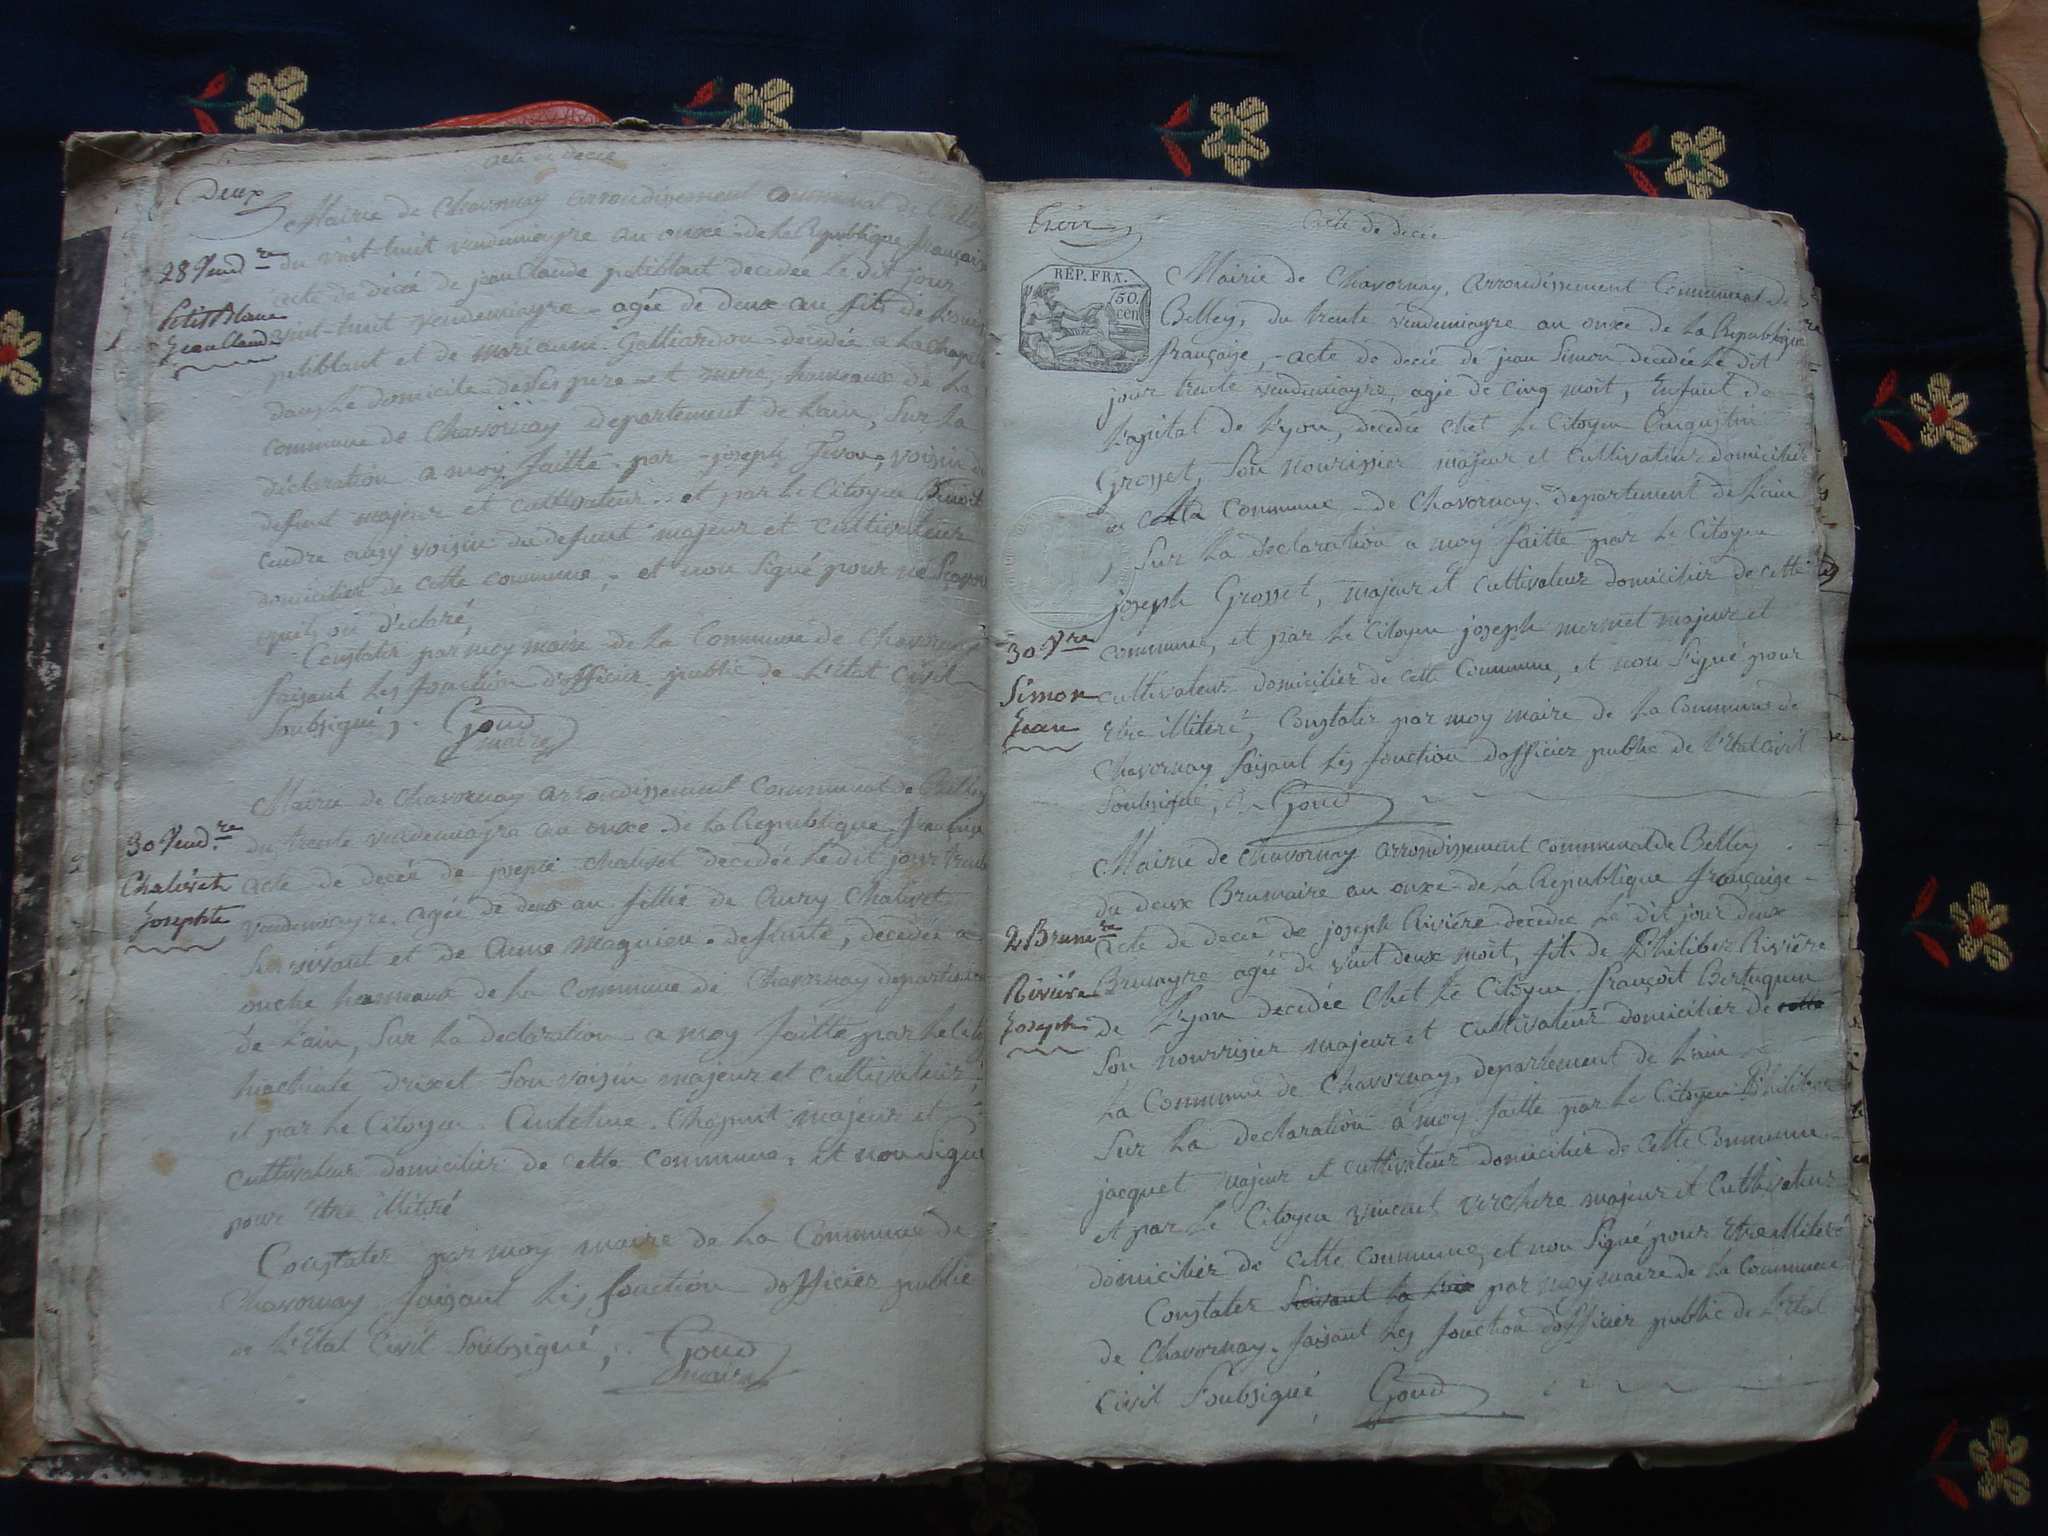 Deux
acte de decée
Mairie de Chavornay arrondissement communal de Belley
28 Vend.re
du vint-huit vendemiayre an onxe de la Republique française
acte de décée de jean Claude petitblant decedée le dit jour
Petit Blanc
Jean Claude
vint-huit vendemiayre agée de deux an fils de Louis
petitblant et de marianne Galliardon decedée a la Chapelle
dans le domicile de ses pere et mere, hameaux de la
commune de Chavornay departement de Lain, Sur la
déclaration a moy faitte par joseph voisin du
defunt majeur et cultivateur et par le Citoyen Benoit
aussy voisin du defunt majeur et cultivateur
domicilier de cette commune, et non signé pour ne Scavoir
d'éclaré,
Constater par moy maire de la Commune de Chavornay
faisant les fonction d'officier public de L'Etat Civil
Soubsigné, Goud
maire
Mairie de Chavornay arrondissement Communal de Belley
30 Vend.re
du trente vendemiayre an onxe de la Republique française
Chalivet
Josephte
acte de decée de josepte chalivet decedée le dit jour trente
vendemiayre agée de deux an fillie de Chalivet
Survivant et de Anne magnien defunte, decedée a
ouche hameaux de la Commune de Chavornay departement
de Lain, Sur la declaration a moy faitte par le
Son voisin majeur et cultivateur,
et par le Citoyen Antelme Chaput majeur et
cultivateur domicilier de cette commune, et non Signé
pour Etre illiteré
Constater par moy maire de la Commune de
Chavornay faisant les fonction dofficier public
de L'Etat Civil Soubsigné, Goud
maire
Troix
Acte de decée
RÉP. FRA.
50. cen
Mairie de Chavornay, arrondissement Communal de
Belley, du trente vendemiayre an onxe de la Republique
française, acte de decée de jean Simon decedée le dit
jour trente vendemiayre, agée de cinq moit, Enfant de
L'opital de Lyon, decedée chet le Citoyen
Grosset, Son nourissier majeur et cultivateur domicilier
de la Commune de Chavornay departement de Lain
Sur la declaration a moy faitte par le Citoyen
joseph Grosset, majeur et cultivateur domicilier de cette
30 V.re
commune, et par le Citoyen joseph mermet majeur et
Simon
Jean
cultivateur domicilier de cette Commune, et non Signé pour
Etre illiteré, Constater par moy maire de la Commune de
Chavornay faisant les fonction dofficier public de L'Etat Civil
Soubsigné, Goud
Mairie de Chavornay arrondissement communal de Belley
du deux Brumaire an onxe de la Republique française
2 Brum.re
acte de decée de joseph Rivière decedée le dit jour deux
Rivière
Joseph
Brumayre agée de vint deux moit, fils de Philiber Rivière
de Lyon decedée chet le Citoyen françoit Bertuquen
Son nourrisier majeur et cultivateur domicilier de cette
La Commune de Chavornay, departement de Lain
Sur la declaration a moy faitte par le Citoyen Philiber
jacquet majeur et cultivateur domicilier de cette Commune
et par le Citoyen vincent majeur et Cultivateur
domicilier de cette commune, et non Signé pour Etre illiteré
Constater Suivant la Loix par moy maire de la Commune
de Chavornay, faisant les fonction dofficier public de L'Etat
Civil Soubsigné Goud